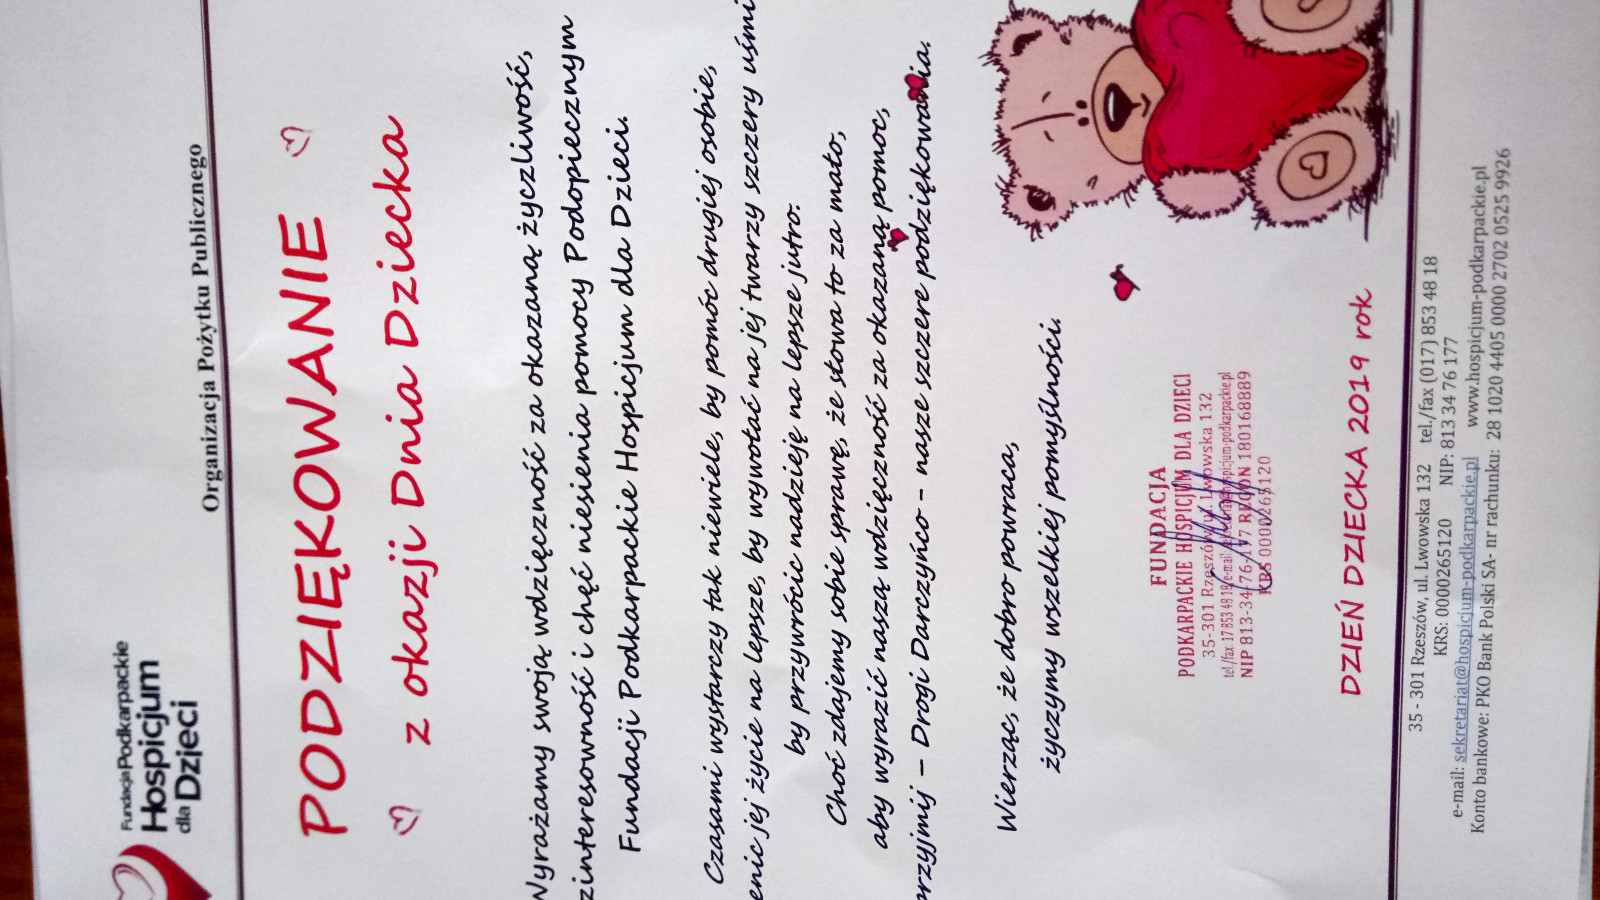 Fundacja Podkarpackie
Hospicjum
dla Dzieci
Organizacja Pożytku Publicznego
PODZIĘKOWANIE
z okazji Dnia Dziecka
Wyrażamy swoją wdzięczność za okazaną życzliwość,
zinteresowność i chęć niesienia pomocy Podopiecznym
Fundacji Podkarpackie Hospicjum dla Dzieci.
Czasami wystarczy tak niewiele, by pomóc drugiej osobie,
enić jej życie na lepsze, by wywołać na jej twarzy szczery uśmi
by przywrócić nadzieję na lepsze jutro.
Choć zdajemy sobie sprawę, że słowa to za mało,
aby wyrazić naszą wdzięczność za okazaną pomoc,
przyjmij – Drogi Darczyńco – nasze szczere podziękowania.
Wierząc, że dobro powraca,
życzymy wszelkiej pomyślności.
FUNDACJA
PODKARPACKIE HOSPICJUM DLA DZIECI
35-301 Rzeszów, ul. Lwowska 132
tel./fax. 17 853 48 18 e-mail: sekretariat@hospicjum-podkarpackie.pl
NIP 813-34-76-177 REGON 180168889
KRS 0000265120
DZIEŃ DZIECKA 2019 rok
35 - 301 Rzeszów, ul. Lwowska 132 tel./fax (017) 853 48 18
KRS: 0000265120 NIP: 813 34 76 177
e-mail: sekretariat@hospicjum-podkarpackie.pl www.hospicjum-podkarpackie.pl
Konto bankowe: PKO Bank Polski SA- nr rachunku: 28 1020 4405 0000 2702 0525 9926